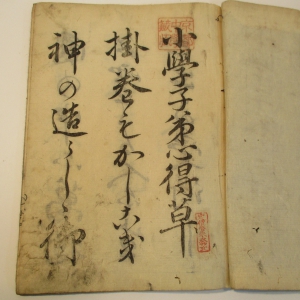 小學子弟心得草
掛巻もかしこき
神の造らしゝ御